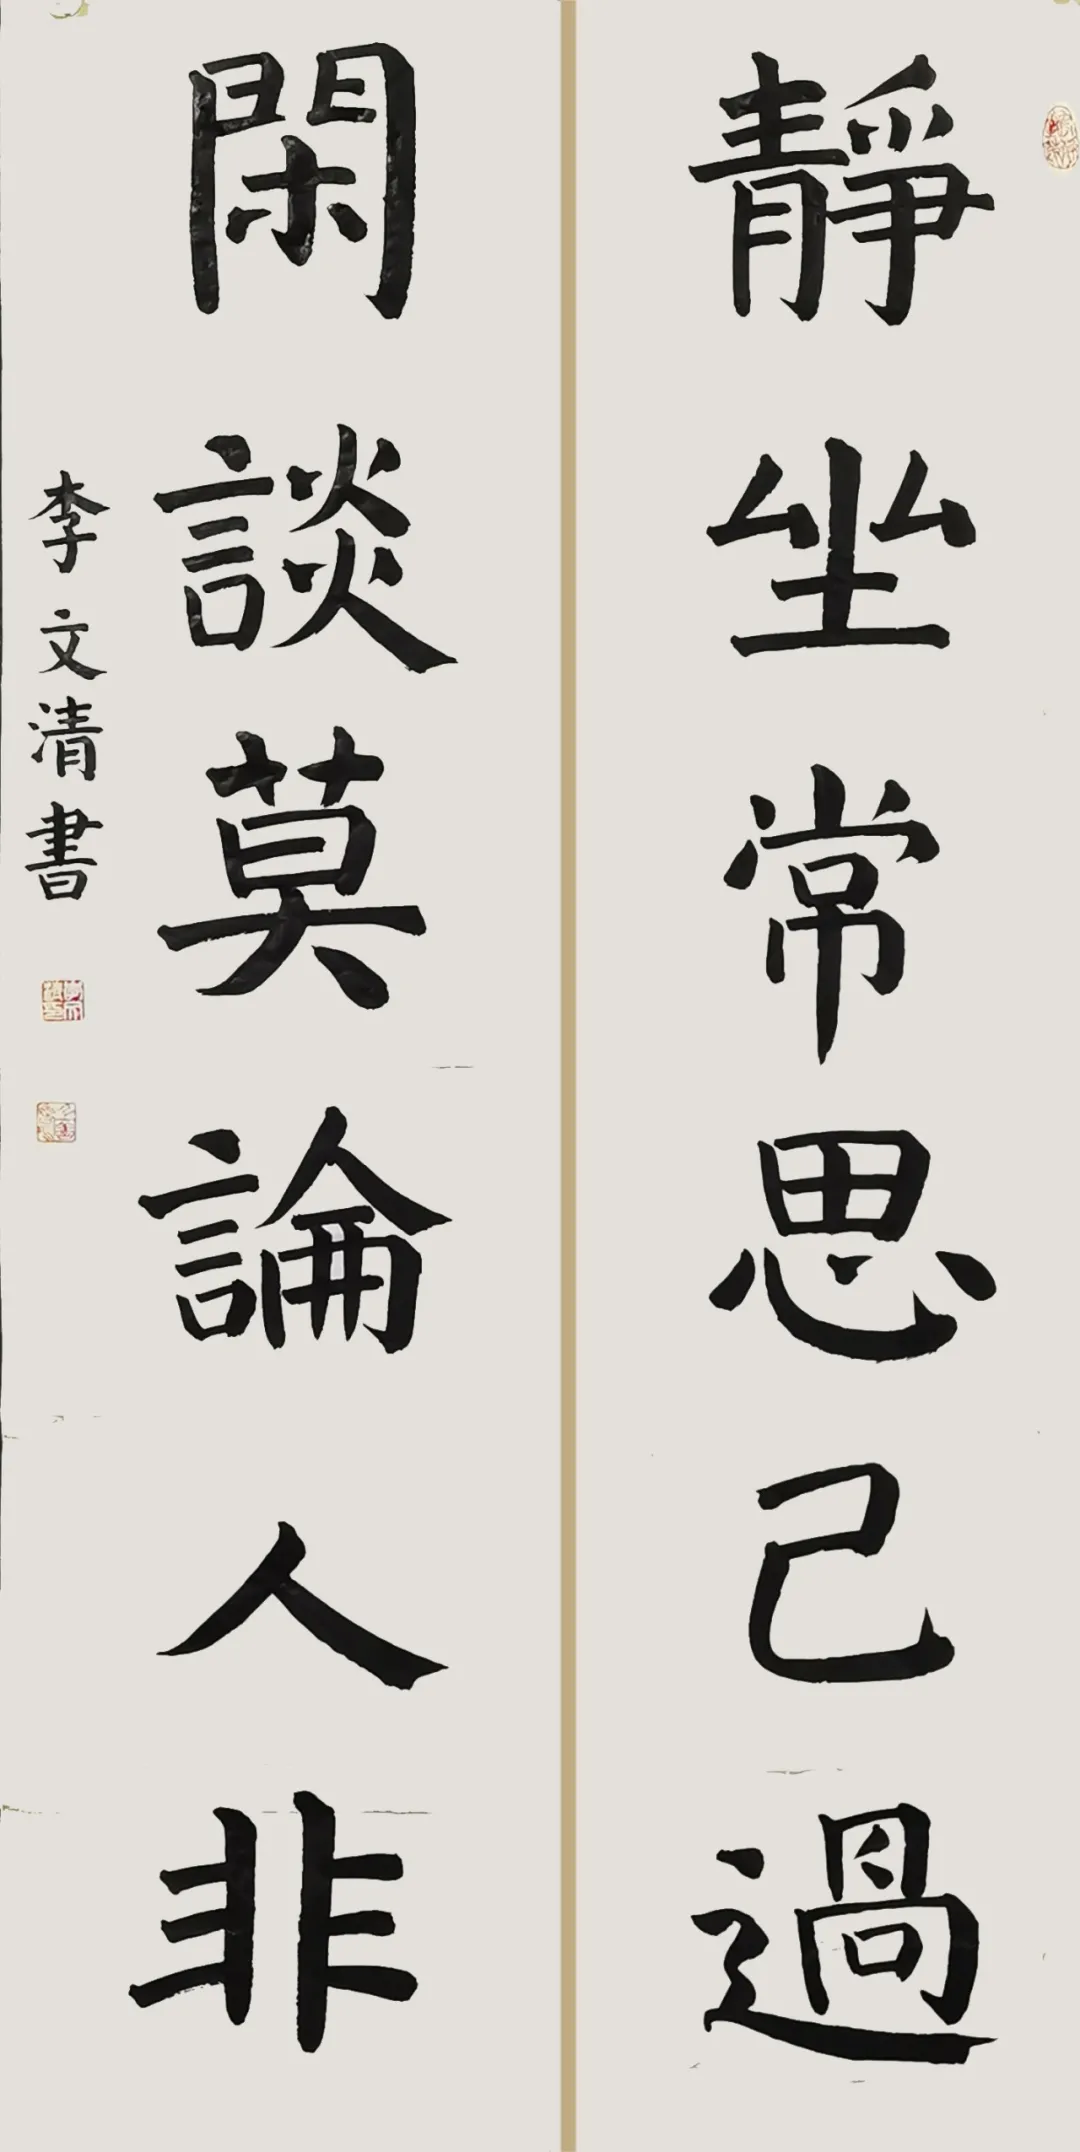 靜坐常思己過
閑談莫論人非
李文清書